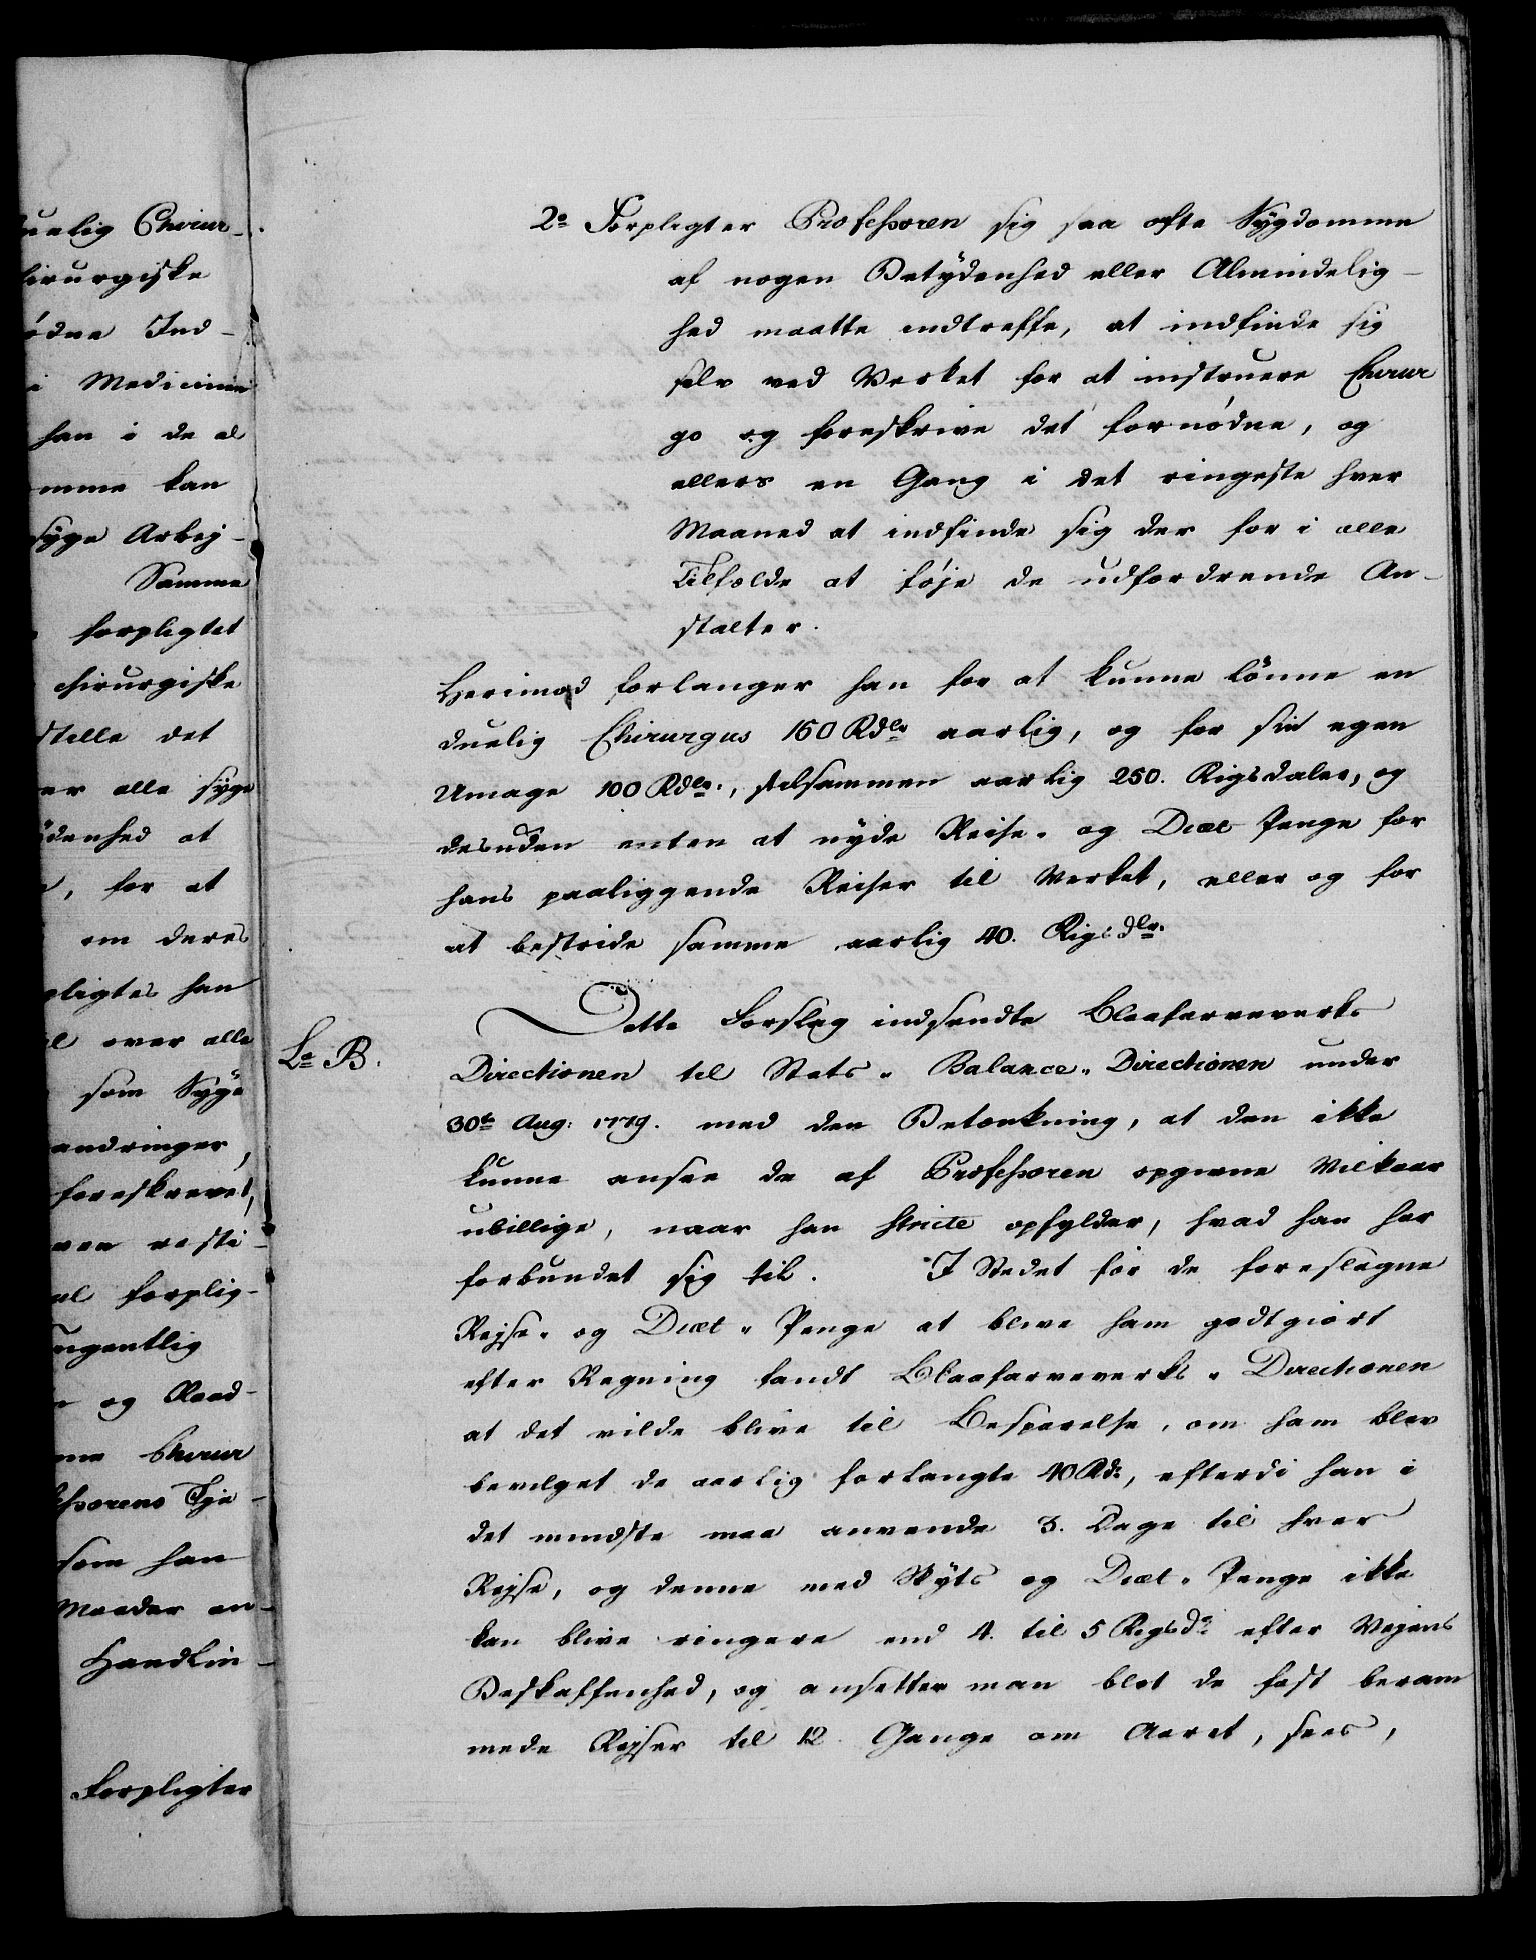 uelig Chirur-
hirurgiske
ödne Ind-
i Medicine
han i de al
omme kan
syge Arbej-
Samme
forpligtet
chirurgiske
stelle det
er alle syge
ÿdenhed at
, for at
om deres
pligtes han
over alle
som Syge
andringer,
foreskrevet,
ven resti-
al forplig-
ugentlig
og Raad-
me Chirur
fessorens Tje-
som han
Maader an-
Handlin-
Forpligter
2º Forpligter Professoren sig saa ofte Sygdomme
af nogen Betÿdenhed eller Almindelig-
hed maatte indtreffe, at indfinde sig
selv ved Verket for at instruere Chirur
go og foreskrive det fornödne, og
ellers en Gang i det ringeste hver
Maaned at indfinde sig der for i alle
Tilfælde at föje de udfordrende An-
stalter.
Herimod forlanger han for at kunne lönne en
duelig Chirurgus 150 Rdlr aarlig, og for sin egen
Umage 100 Rdlr., tilsammen aarlig 250. Rigsdaler, og
desuden enten at nÿde Reise- og Diæt Penge for
hans paaliggende Reiser til Verket, eller og for
at bestride samme aarlig 40. Rigsdlr.
Dette Forslag indsendte Blaafarveverks
La B.
Directionen til Stats- Balance- Directionen under
30te Aug: 1779. med den Betænkning, at den ikke
kunne ansee de af Professoren opgivne Vilkaar
ubillige, naar han stricte opfylder, hvad han har
forbundet sig til. I Stedet for de foreslagne
Rejse- og Diæt- Penge at blive ham godtgiort
efter Regning fandt Blaafarveverks- Directionen
at det vilde blive til Besparelse, om ham blev
bevilget de aarlig forlangte 40 Rdr, efterdi han i
det mindste maa anvende 3. Dage til hver
Rejse, og denne med Skÿts og Diæt- Penge ikke
kan blive ringere end 4. til 5 Rigsdr efter Vejens
Beskaffenhed, og ansetter man blot de fast beram
mede Rejser til 12 Gange om Aaret, sees,